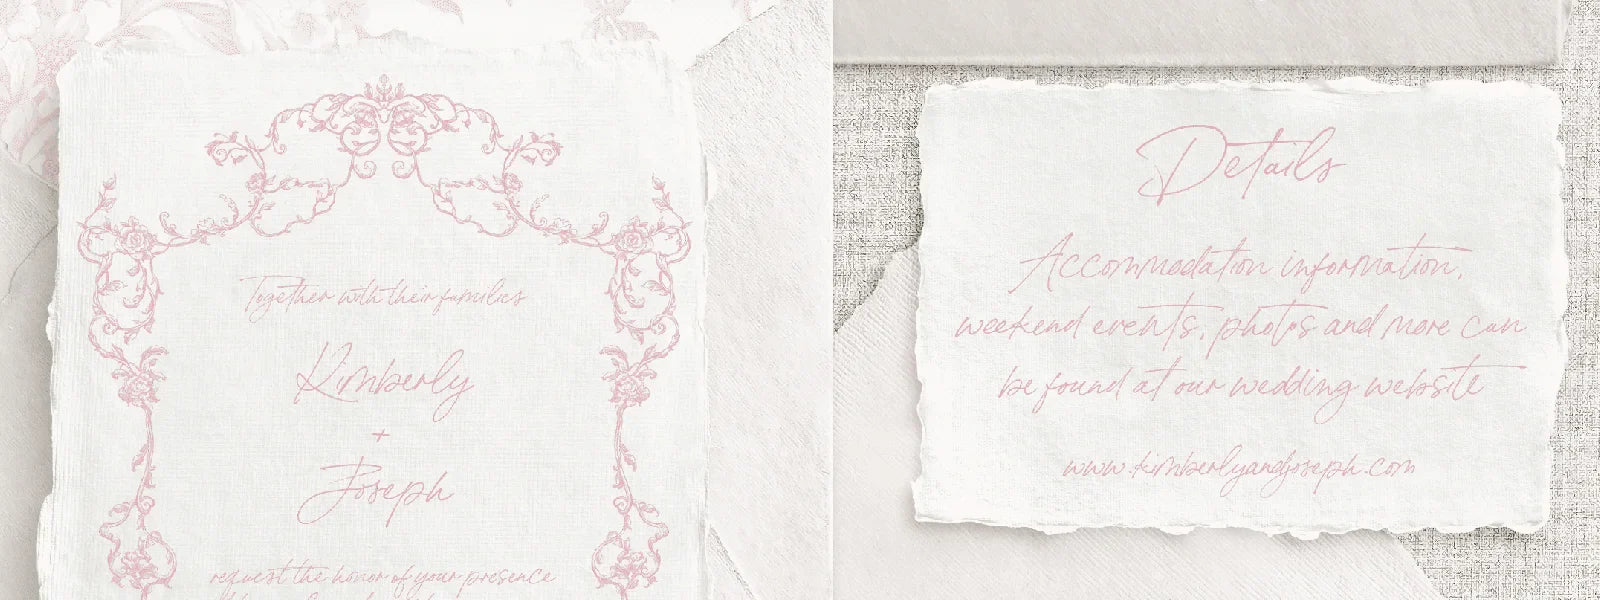 Together with their families
Kimberly
+
Joseph
request the honor of your presence
Details
Accommodation information,
weekend events, photos and more can
be found at our wedding website
www.kimberlyandjoseph.com